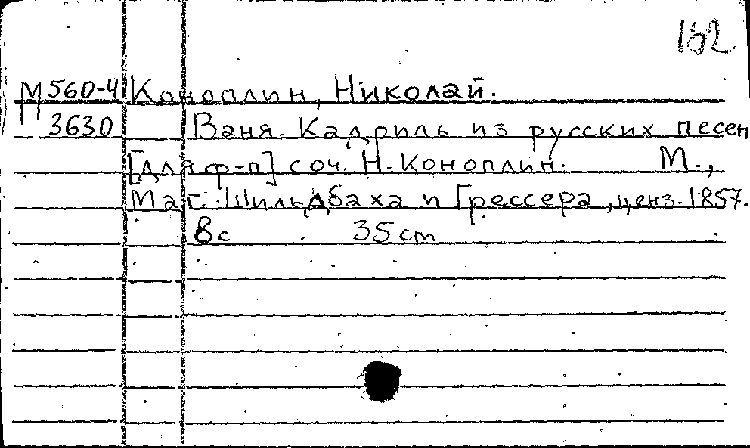 152
М 560-41 Коноплин, Николай.
П 3630 Ваня. Кадриль из русских песен
[для ф-п] соч. Н. Коноплин. М.,
Маг. Шильдбаха и Грессера, ценз. 1857.
8с 35 cm